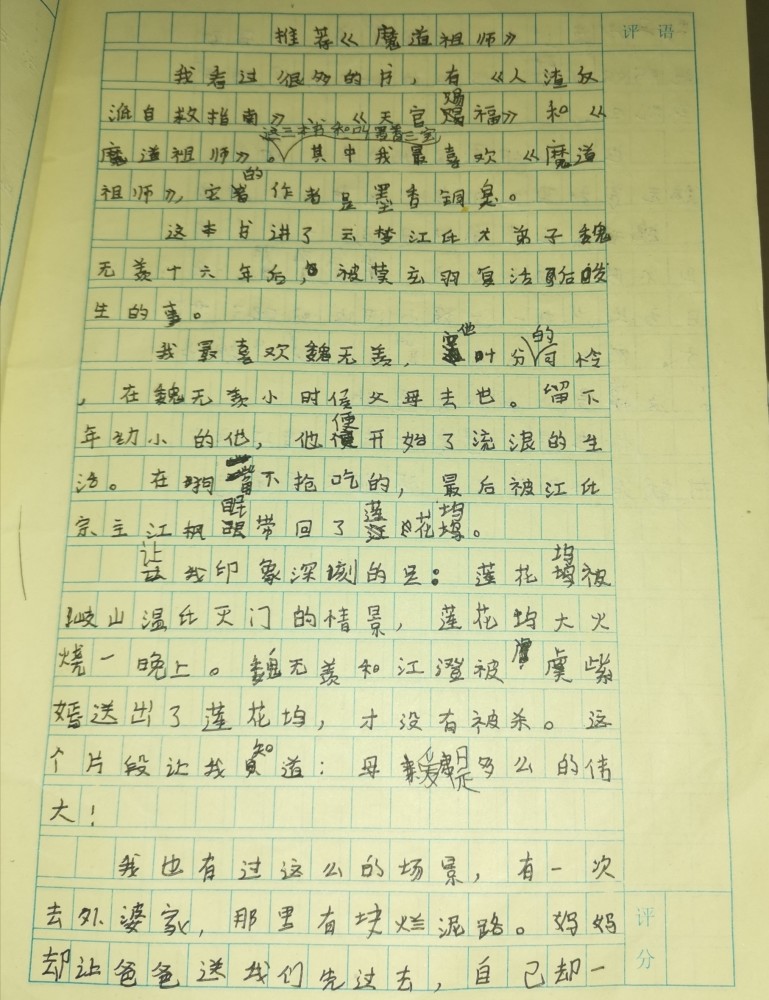 推荐《魔道祖师》
评语
我看过很多的片，有《人渣反
派自救指南》、《天官赐福》和《
这三本书和叫墨香三宝
魔道祖师》。其中我最喜欢《魔道
祖师》，它的作者是墨香铜臭。
这本书讲了云梦江氏大弟子魏
无羡十六年后，被莫玄羽复活后发
生的事。
我最喜欢魏无羡，他十分的可怜
，在魏无羡小时侯父母去也。留下
年幼小的他，他便开始了流浪的生
活。在狗不抢吃的，最后被江氏
宗主江枫眠带回了莲花坞。
让我印象深刻的是：莲花坞被
岐山温氏灭门的情景，莲花坞大火
烧一晚上。魏无羡和江澄被虞紫
婿送出了莲花坞，才没有被杀。这
个片段让我知道：母爱是多么的伟
大！
我也有过这么的场景，有一次
去外婆家，那里有块烂泥路。妈妈
却让爸爸送我们先过去，自己却一
评分